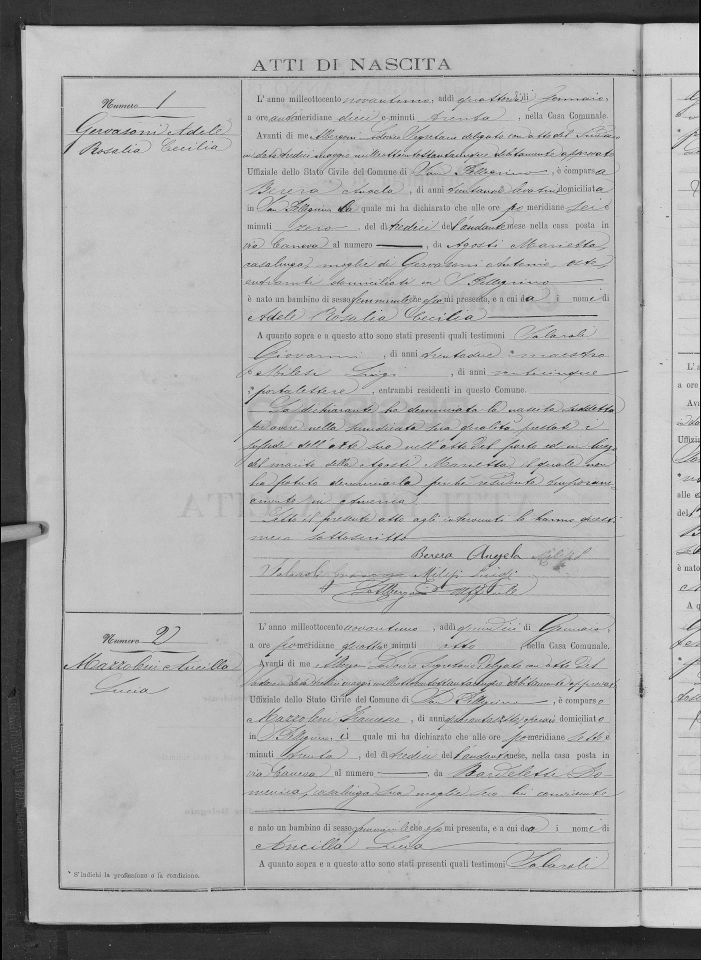 ATTI DI NASCITA
Numero 1
Gervasoni Adele
Rosalia Cecilia
L'anno milleottocento novantuno, addì quattordici di Gennaio,
a ore antimeridiane dieci e minuti trenta, nella Casa Comunale.
Avanti di me Segretario delegato con atto del Sindaco
in data tredici maggio milleottocentottantacinque debitamente approvato
Uffiziale dello Stato Civile del Comune di San Pellegrino, è comparsa
Berera Angela, di anni domiciliata
in San Pellegrino la quale mi ha dichiarato che alle ore pomeridiane sei e
minuti zero, del dì tredici dell'andante mese, nella casa posta in
via Caneva al numero —, da Agosti Marietta,
casalinga, moglie di Gervasoni Antonio, oste,
entrambi domiciliati in S. Pellegrino
è nato un bambino di sesso femminile che essa mi presenta, e a cui dà i nomi di
Adele Rosalia Cecilia
A quanto sopra e a questo atto sono stati presenti quali testimoni Salaroli
Giovanni, di anni trentadue, maestro
e Milesi Luigi, di anni venticinque
portalettere, entrambi residenti in questo Comune.
La dichiarante ha denunciata la nascita suddetta
per avere nella sua qualità prestati i
sussidi dell'arte sua nell'atto del parto ed in luogo
del marito della Agosti Marietta il quale non
ha potuto denunciarla perchè residente
in America
Letto il presente atto agli intervenuti lo hanno questi
meco sottoscritto
Berera Angela
Salaroli Giovanni Milesi Luigi
Numero 2
Mazzoleni Ancilla
Lucia
L'anno milleottocento novantuno, addì quindici di Gennaio,
a ore pomeridiane quattro e minuti otto, nella Casa Comunale.
Avanti di me Segretario delegato con atto del
debitamente approvato
Uffiziale dello Stato Civile del Comune di San Pellegrino, è comparso
Mazzoleni Francesco, di anni domiciliato
in S. Pellegrino il quale mi ha dichiarato che alle ore pomeridiane sette e
minuti trenta, del dì tredici dell'andante mese, nella casa posta in
via Caneva al numero —, da Bardeletti Do-
menica, casalinga sua moglie seco lui convivente
è nato un bambino di sesso femminile che esso mi presenta, e a cui dà i nomi di
Ancilla Lucia
A quanto sopra e a questo atto sono stati presenti quali testimoni Salaroli
* S'indichi la professione o la condizione.